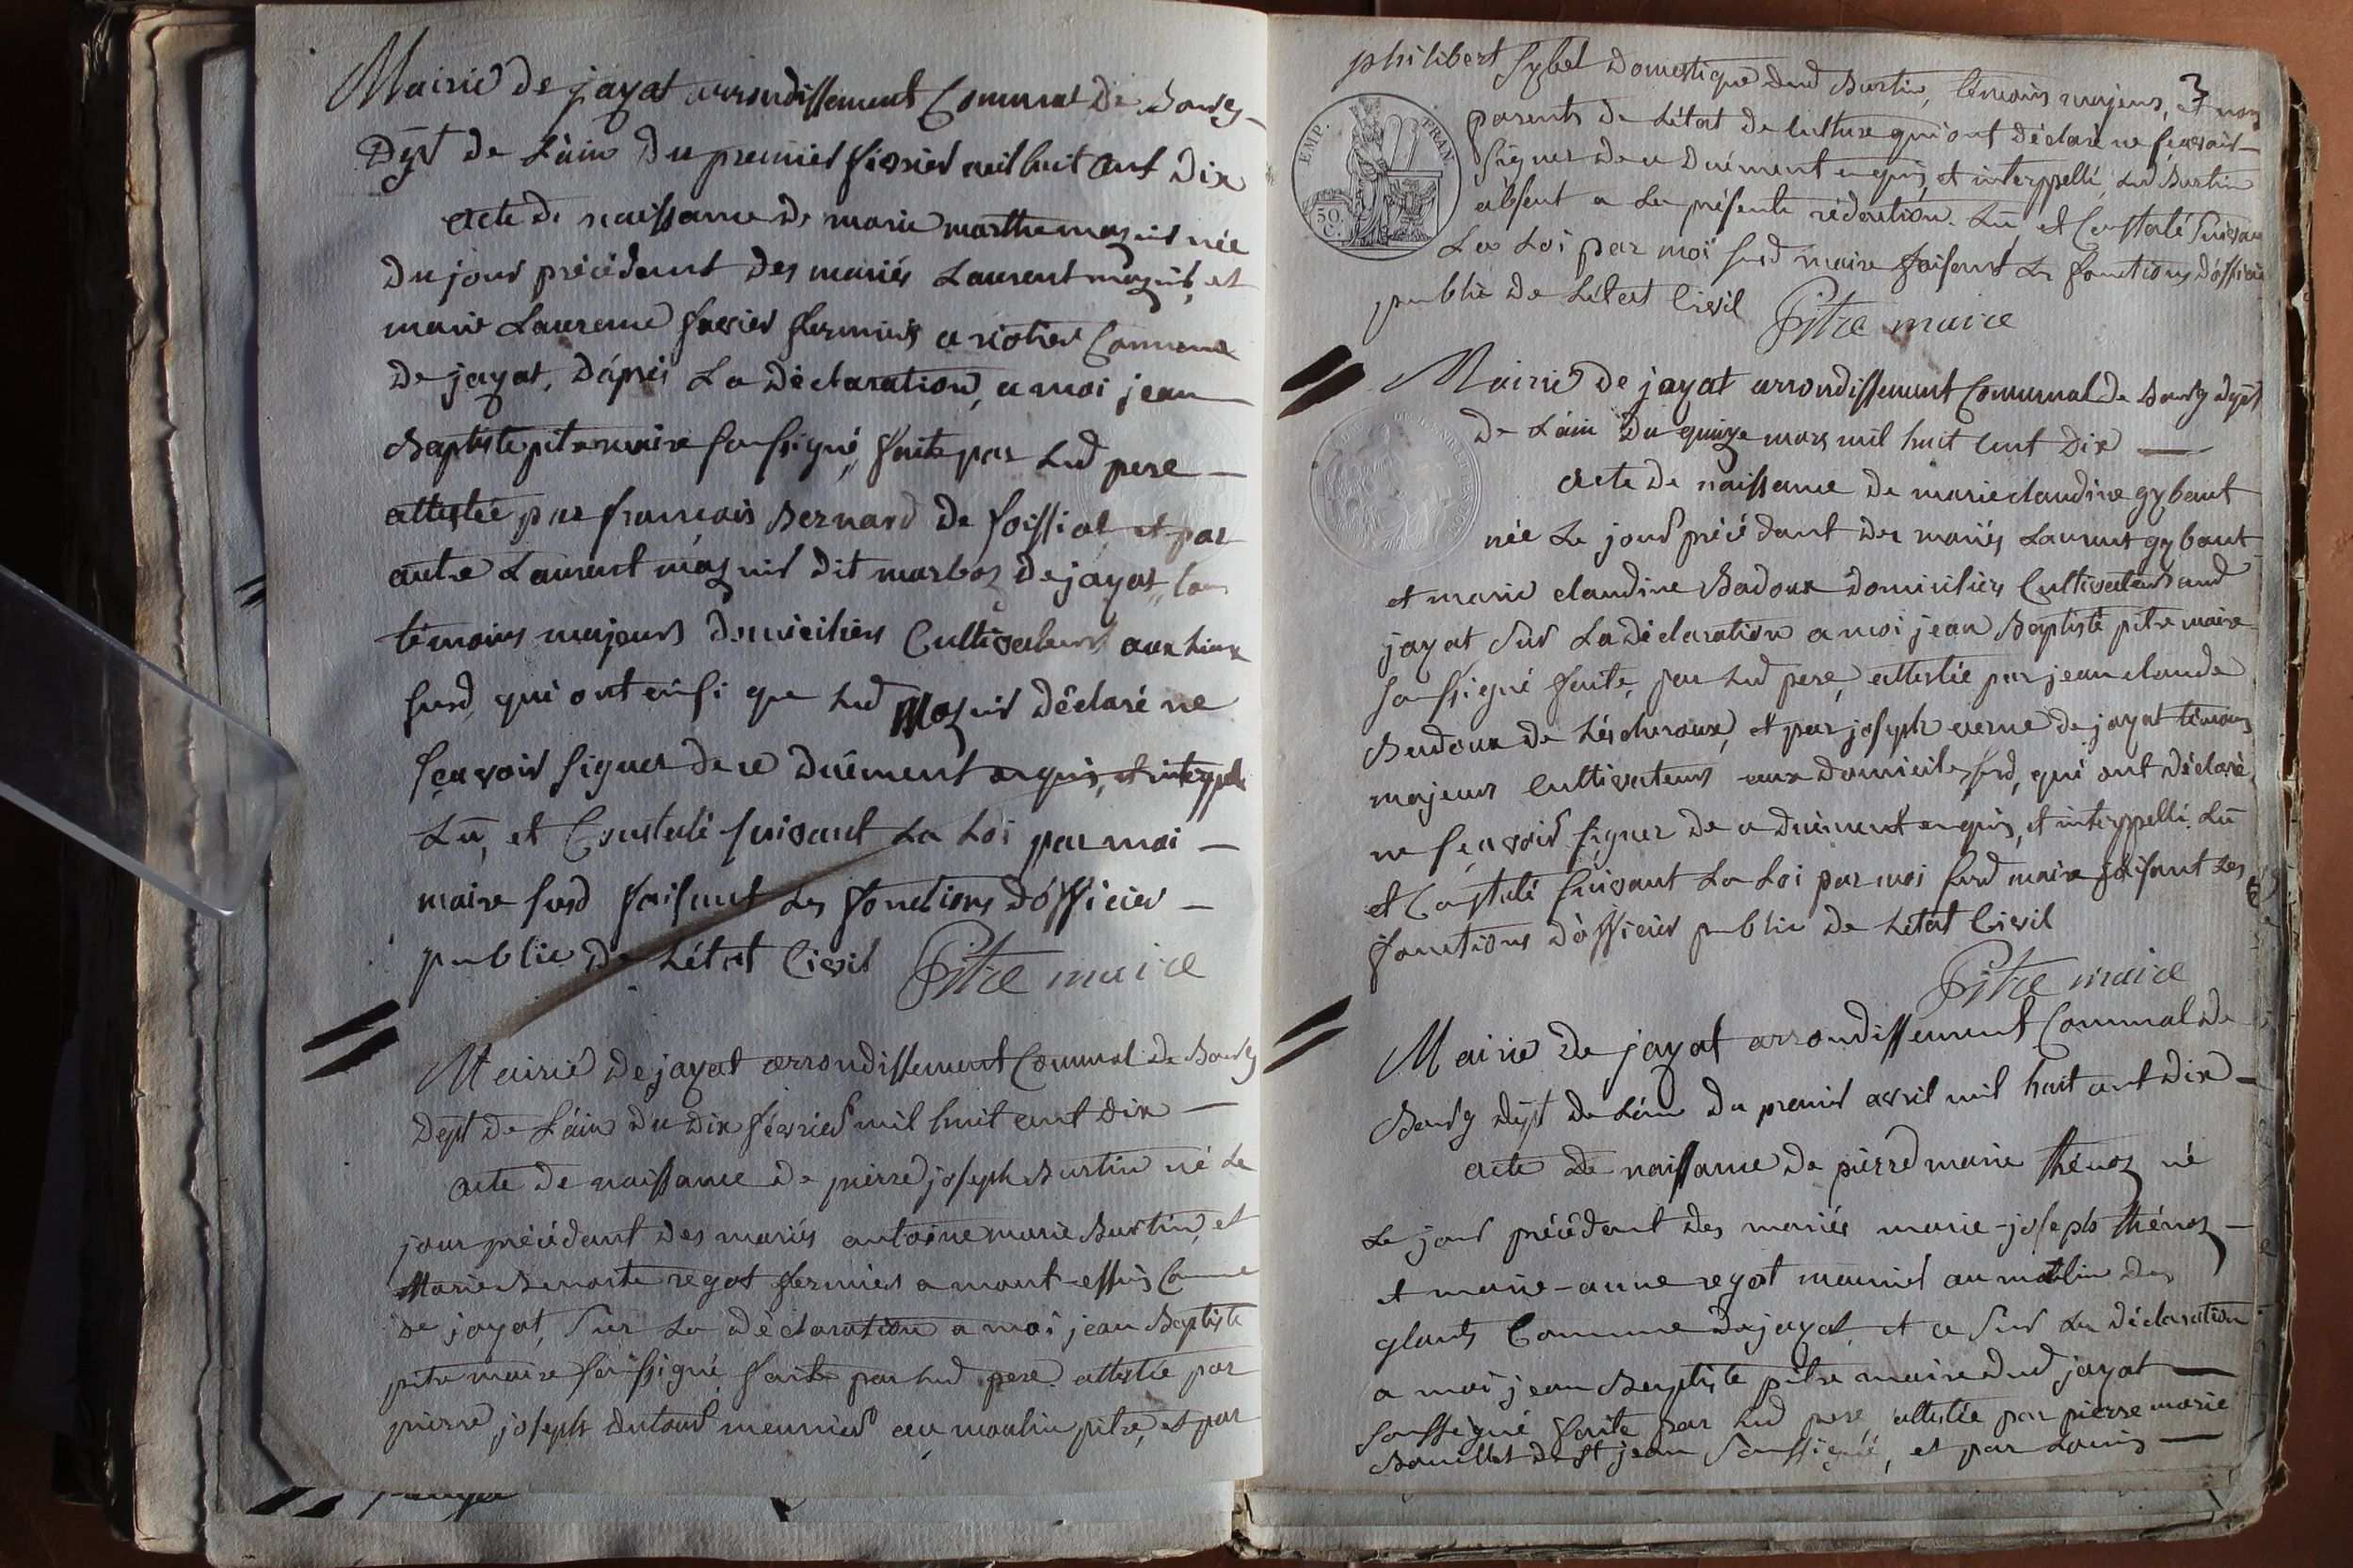 Mairie de jayat arrondissement Communal De Bourg
Dept de L'ain Du premier fevrier mil huit Cent Dix
acte de naissance de marie marthe mazuir née
Du jour précédant des mariés Laurent mazuir, et
marie Laurence favier fermiers a Commune
De jayat, D'après La Déclaration, a moi jean
Baptiste pitre maire soussigné, faite par Lud pere
attestée par françois Bernard De foissiat et par
autre Laurent mazuir dit marboz De jayat,
témoins majeurs domiciliés Cultivateurs aux Lieux
susd, qui ont ainsi que Lud Mazuir Déclaré ne
sçavoir signer de ce Duëment enquis, et interppellé
Lû, et Constaté suivant La Loi par moi
maire susd faisant Les fonctions D'officier
public De L'état Civil Pitre maire
Mairie De jayat arrondissement Communal De Bourg
Dept De L'ain Du Dix février mil huit cent Dix
acte De naissance De pierre joseph Burtin né Le
jour précédant Des mariés antoine marie Burtin, et
Marie Benoite regat fermiers a mont-essuis Comune
De jayat, Sur La Déclaration a moi jean Baptiste
pitre maire soussigné faite par Lud pere. attestée par
pierre joseph Dutour meunier au moulin pitre, et par
philibert Sybel Domestique dud Burtin, témoins majeurs, et non 3
parents De L'état De Culture qui ont Déclaré ne sçavoir
EMP. FRAN.
50. C.
signer De ce Duëment enquis, et interppellé, Lud Burtin
absent a La présente rédaction. Lû et Constaté Suivant
La Loi par moi susd maire faisant Les fonctions D'officier
public De L'état Civil Pitre maire
Mairie De jayat arrondissement Communal De Bourg Dept
De L'ain Du quinze mars mil huit Cent Dix
Acte De naissance De marie claudine gybaut
née Le jour précédant Des mariés Laurent gybaut
et marie claudine Badoux Domiciliés Cultivateurs aud
jayat Sur La Déclaration a moi jean Baptiste pitre maire
soussigné faite, par Lud pere, attestée par jean claude
Badoux De Lescheroux, et par joseph verne De jayat témoins
majeurs Cultivateurs aux Domiciles susd, qui ont Déclaré
ne sçavoir signer De ce Duëment enquis, et interppellé. Lû
et Constaté Suivant La Loi par moi susd maire faisant Les
fonctions D'officier public De L'état Civil
Pitre maire
Mairie De jayat arrondissement Communal De
Bourg Dept De L'ain Du premier avril mil huit cent Dix
acte De naissance De pierre marie thénoz né
Le jour précédant Des mariés marie-joseph thénoz
et marie-anne regat meunier au moulin Des
glants Commune De jayat, et ce Sur La Déclaration
a moi jean Baptiste pitre maire Dud jayat
soussigné faite par Lud pere, attestée par pierre marie
Bouillet De St jean Soussigné, et par Louis